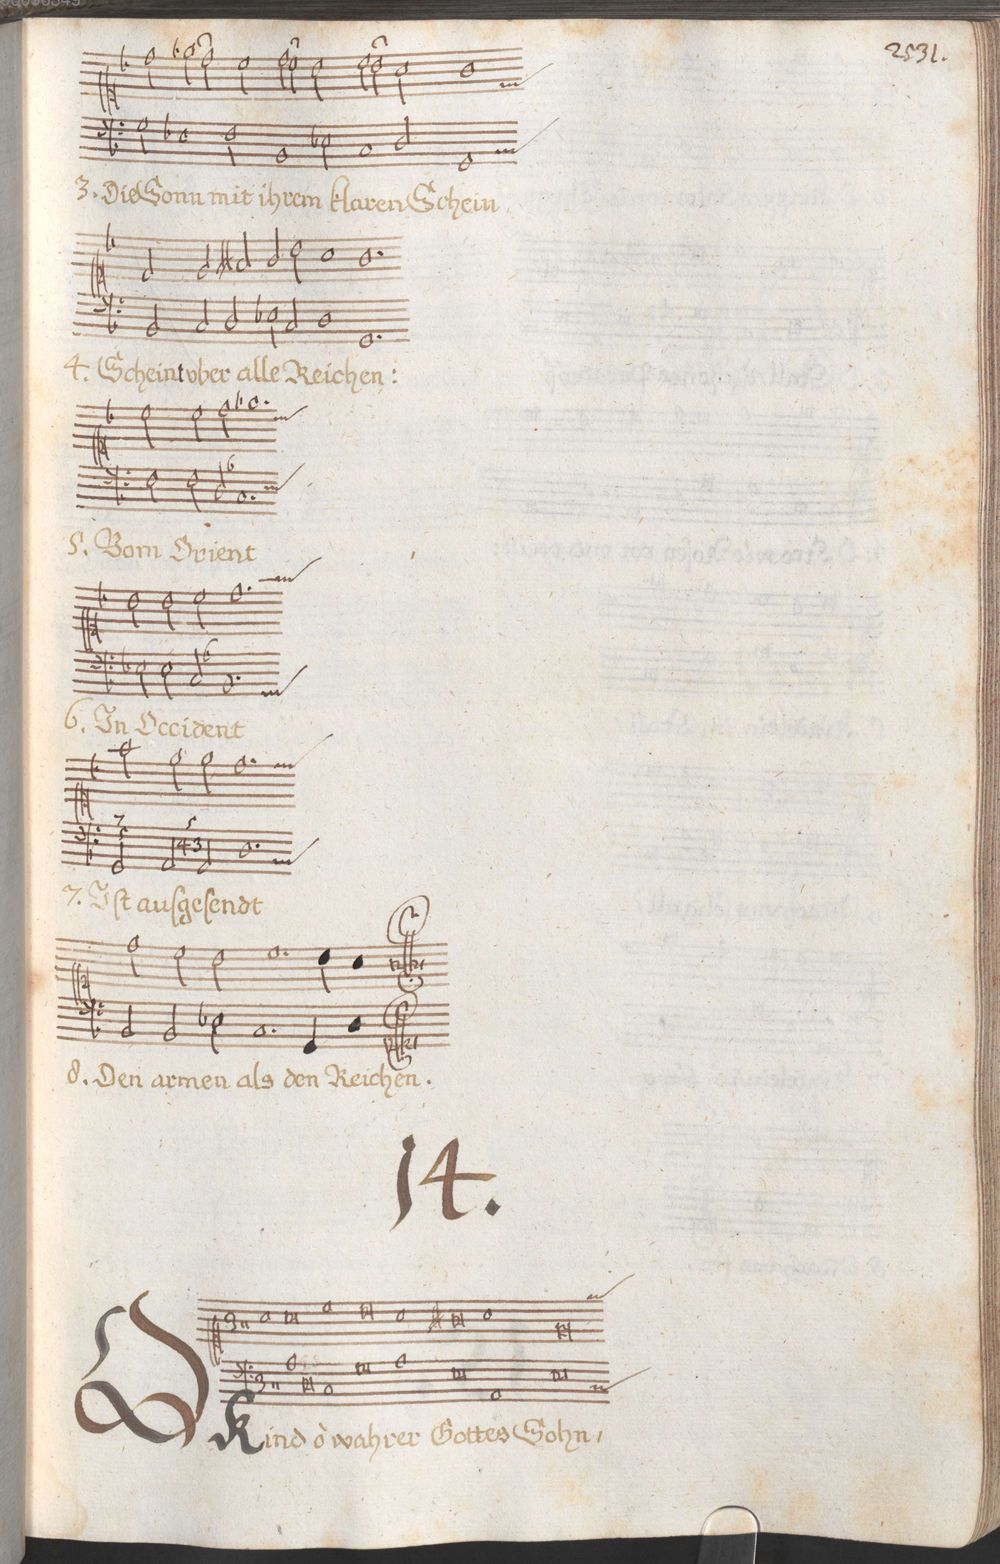 2531.
3. Die Sonn mit ihrem klaren Schein
4. Scheint vber alle Reichen:
5. Vom Orient
6. In Occident
7. Ist ausgesendt
8. Den armen als den Reichen.
14.
O Kind ò wahrer Gottes Sohn,